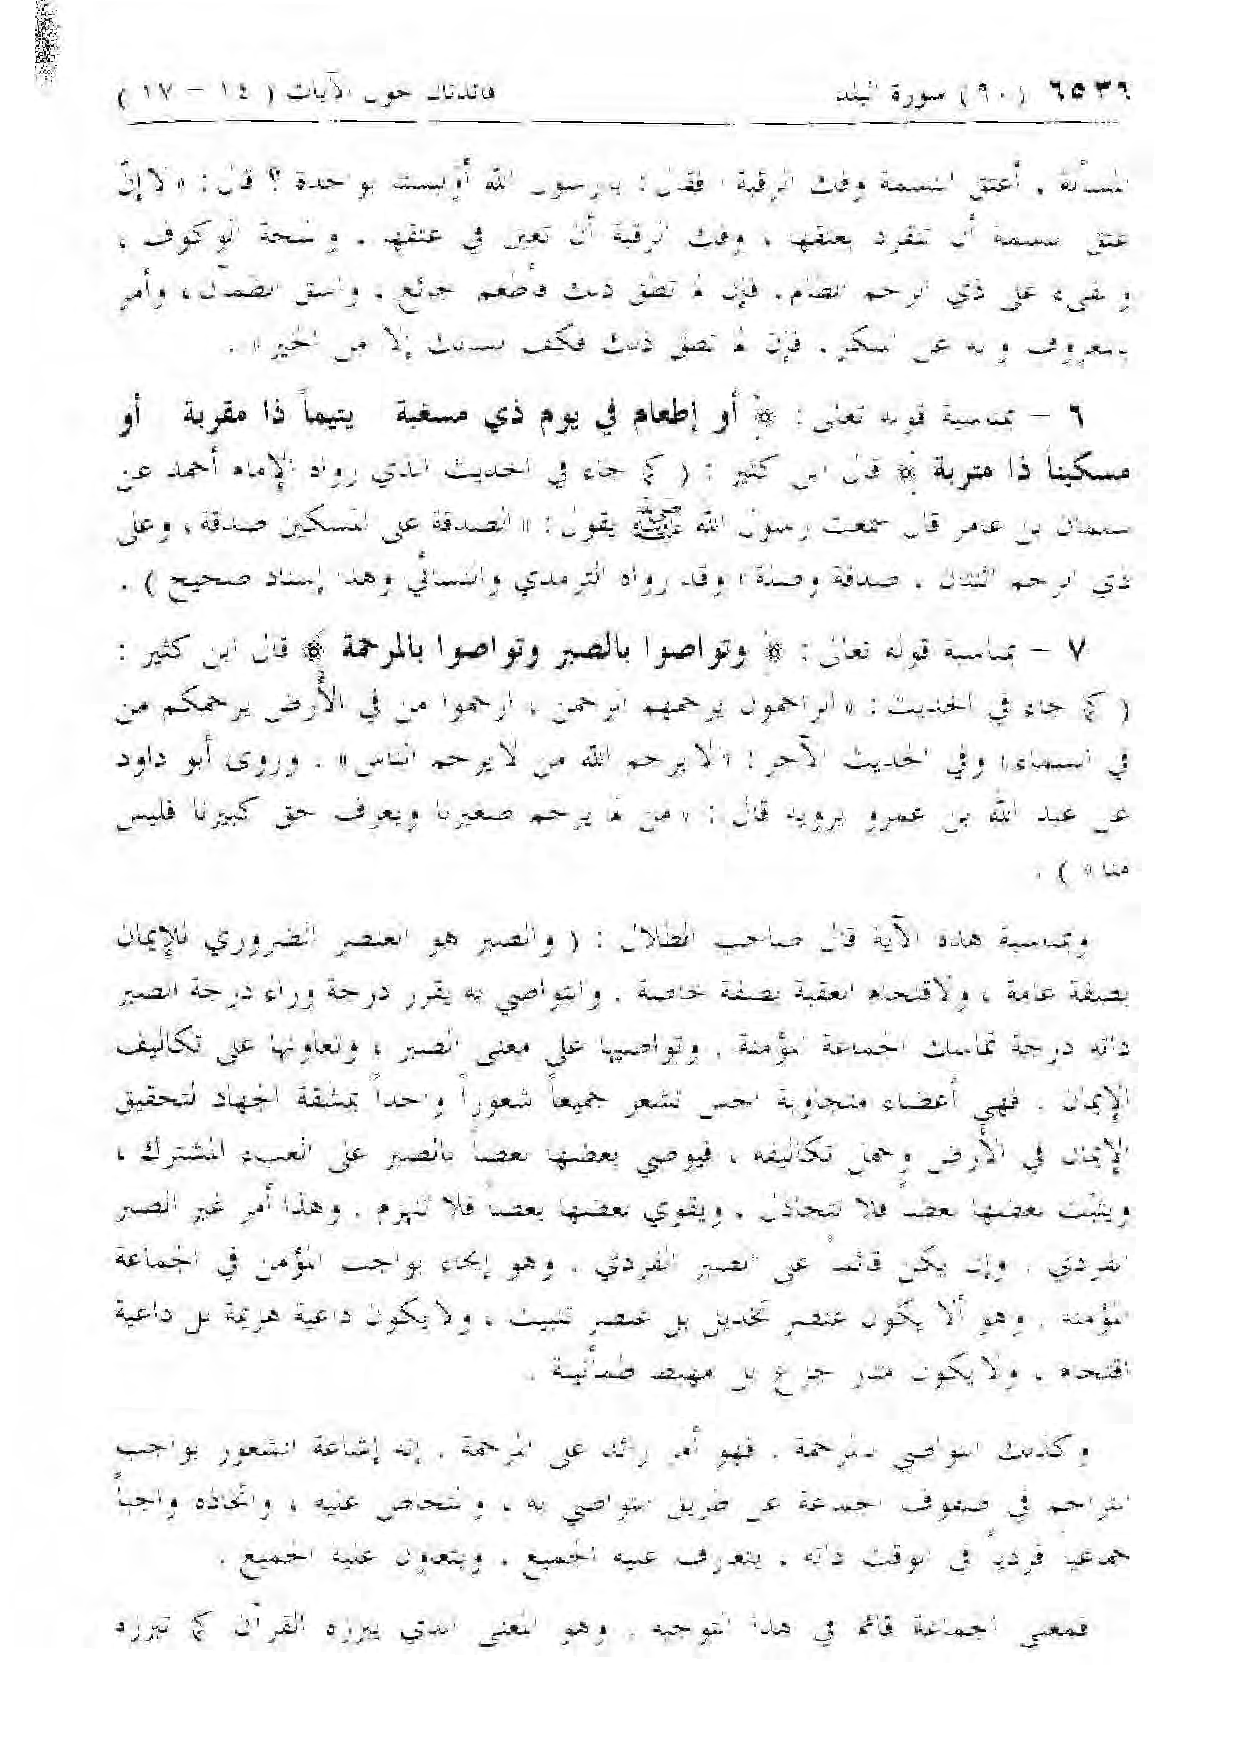 ٦٥٣٩ (٩٠) سورة البلد فائدتان حول الآيات ( ١٤ – ١٧ )
المسألة ، أعتق النسمة وفك الرقبة ، فقال : يا رسول الله أو ليست بواحدة ؟ قال : « لا إن
عتق النسمة أن تنفرد بعتقها ، وفك الرقبة أن تعين في عتقها . والمنحة الوكوف ،
والفيء على ذي الرحم الظالم . فإن لم تطق ذلك فأطعم الجائع ، واسق الظمآن ، وأمر
بالمعروف وانه عن المنكر ، فإن لم تطق ذلك فكف لسانك إلا من الخير » .
٦ – بمناسبة قوله تعالى : ﴿ أو إطعام في يوم ذي مسغبة يتيماً ذا مقربة أو
مسكيناً ذا متربة ﴾ قال ابن كثير : ( كما جاء في الحديث الذي رواه الإمام أحمد عن
سلمان بن عامر قال سمعت رسول الله ﷺ يقول : « الصدقة على المسكين صدقة ، وعلى
ذي الرحم اثنتان ، صدقة وصلة » وقد رواه الترمذي والنسائي وهذا إسناد صحيح ) .
٧ – بمناسبة قوله تعالى : ﴿ وتواصوا بالصبر وتواصوا بالمرحمة ﴾ قال ابن كثير :
( كما جاء في الحديث : « الراحمون يرحمهم الرحمن ، ارحموا من في الأرض يرحمكم من
في السماء » وفي الحديث الآخر : « لا يرحم الله من لا يرحم الناس » . وروى أبو داود
عن عبد الله بن عمرو يرويه قال : « من لم يرحم صغيرنا ويعرف حق كبيرنا فليس
منا » ) .
وبمناسبة هذه الآية قال صاحب الظلال : ( والصبر هو العنصر الضروري للإيمان
بصفة عامة ، ولاقتحام العقبة بصفة خاصة . والتواصي به يقرر درجة وراء درجة الصبر
ذاته درجة تماسك الجماعة المؤمنة ، وتواصيها على معنى الصبر ، وتعاونها على تكاليف
الإيمان . فهي أعضاء متجاوبة الحس تشعر جميعاً شعوراً واحداً بمشقة الجهاد لتحقيق
الإيمان في الأرض وحمل تكاليفه ، فيوصي بعضها بعضاً بالصبر على العبء المشترك ،
ويثبت بعضها بعضاً فلا تتخاذل ، ويقوي بعضها بعضاً فلا تنهزم . وهذا أمر غير الصبر
الفردي . وإن يكن قائماً على الصبر الفردي . وهو إيحاء بواجب المؤمن في الجماعة
المؤمنة . وهو ألا يكون عنصر تخذيل بل عنصر تثبيت ، ولا يكون داعية هزيمة بل داعية
اقتحام ، ولا يكون مثار جزع بل مهبط طمأنينة .
وكذلك التواصي بالمرحمة . فهو أمر زائد على المرحمة . إنه إشاعة الشعور بواجب
التراحم في صفوف الجماعة عن طريق التواصي به ، والتحاض عليه ، واتخاذه واجباً
جماعياً فردياً في الوقت ذاته ، يتعارف عليه الجميع ، ويتعاون عليه الجميع .
فمعنى الجماعة قائم في هذا التوجيه . وهو المعنى الذي يبرزه القرآن كما تبرزه